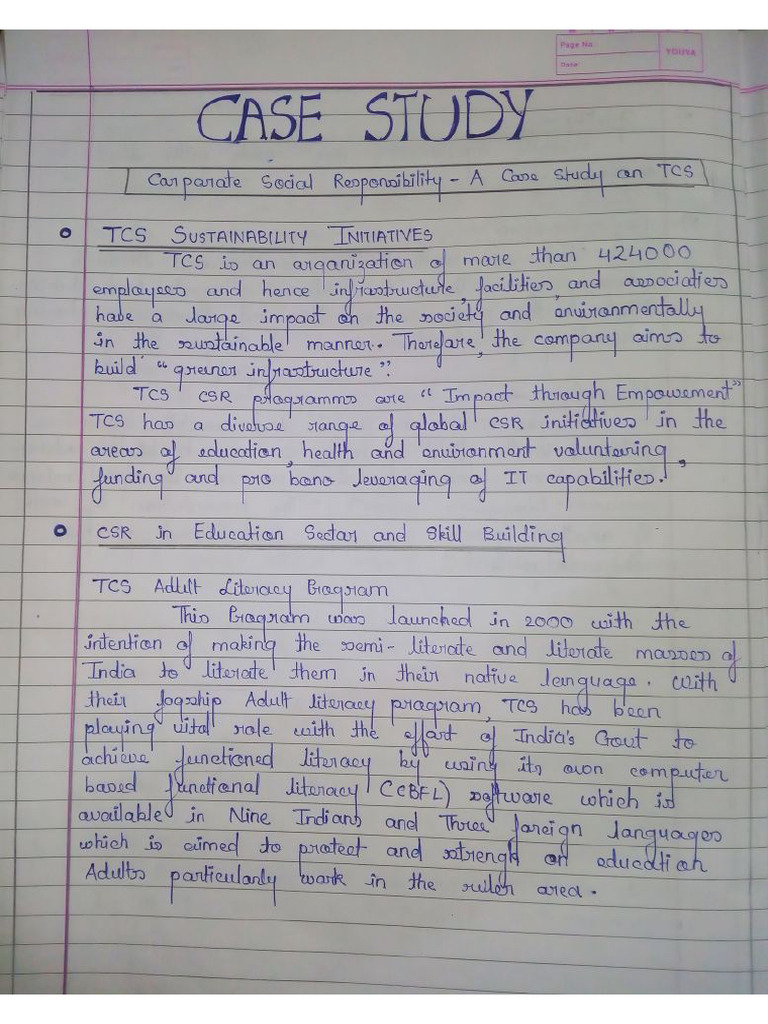 Page No
Date:
YOUVA
CASE STUDY
Carparate Social Responsibility - A Case Study on TCS
TCS SUSTAINABILITY INITIATIVES
TCS is an arganization of more than 424000
employees and hence infrastructure, facilities, and associaties
have a large impact on the society and environmentally
in the sustainable manner. Therefare, the company aims to
build "greiner infrastructure".
TCS CSR programms are "Impact through Empowement"
TCS has a diverse range of global CSR initiatives in the
areas of education, health and environment voluntaring,
funding and pro bono leveraging of IT capabilities.
CSR in Education Sectar and Skill Building
TCS Adult Literacy Program
This Program was launched in 2000 with the
intention of making the semi-literate and literate masses of
India to literate them in their native lenguage. with
their fagship Adult literacy pragram, TCS has been
playing vital role with the effart of India's Govt to
achieve functioned literacy by using its own computer
based functional literacy (CBFL) software which is
available in Nine Indians and Three fareign languages
which is aimed to protect and strength on education
Adults particularly work in the ruler area.